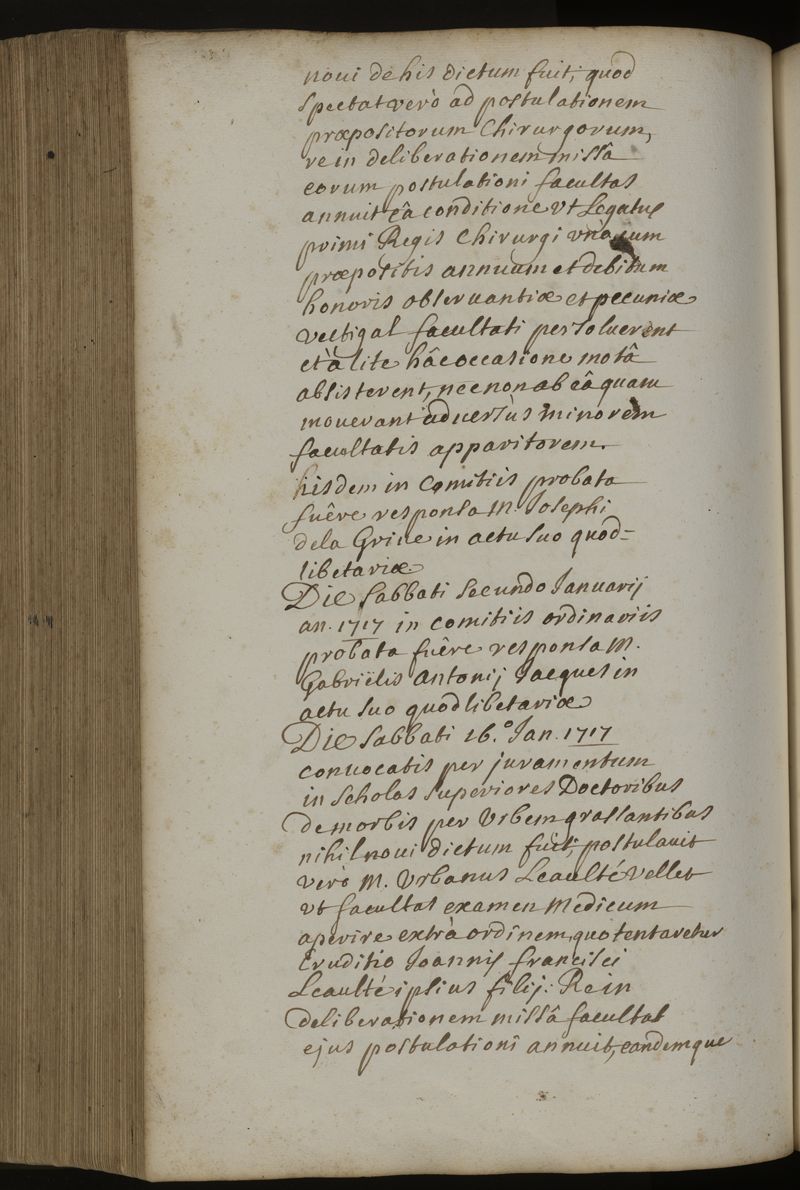 noui de his dictum fuit; quod
spectat verò ad postulationem
præpositorum Chirurgorum,
re in deliberationem missâ
eorum postulationi facultas
annuit eâ conditione vt Legatus
primi Regis Chirurgi vnà cum
præpositis annuum et debitum
honoris obseruantiæ et pecuniæ
vectigal facultati persoluerent
et à lite hâc occasione motâ
absisterent, necnon ab eâ quam
mouerant aduersùs minorem
facultatis apparitorem.
hisdem in Comitiis probata
fuêre responsa M. Josephi
de la Griue in actu suo quod=
libetariæ
Die Sabbati secundo Januarij
an. 1717 in comitiis ordinariis
probata fuêre responsa M.
Gabriëlis Antonij Jacques in
actu suo quodlibetariæ
Die Sabbati 16.° Jan. 1717
conuocatis per juramentum
in Scholas superiores Doctoribus
de morbis per Vrbem grassantibus
nihil noui dictum fuit; postulauit
verò M. Vrbanus Leaulté vellet
vt facultas examen Medicum
aperire extrà ordinem, quo tentaretur
Eruditio Joannis francisci
Leaulté ipsius filij: Re in
deliberationem missâ facultas
ejus postulationi annuit, eandemque